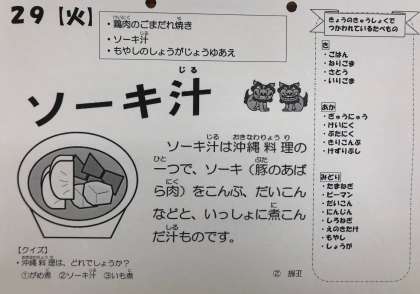 29【火】
・鶏肉のごまだれ焼き
・ソーキ汁
・もやしのしょうがじょうゆあえ
ソーキ汁
ソーキ汁は沖縄料理の
一つで、ソーキ（豚のあば
ら肉）をこんぶ、だいこん
などと、いっしょに煮こん
だ汁ものです。
【クイズ】
・沖縄料理は、どれでしょうか？
①がめ煮 ②ソーキ汁 ③いも煮
②
きょうのきゅうしょくで
つかわれているたべもの
き
・ごはん
・ねりごま
・さとう
・いりごま
あか
・ぎゅうにゅう
・けいにく
・ぶたにく
・きりこんぶ
・けずりぶし
みどり
・たまねぎ
・ピーマン
・だいこん
・にんじん
・しろねぎ
・えのきたけ
・もやし
・しょうが